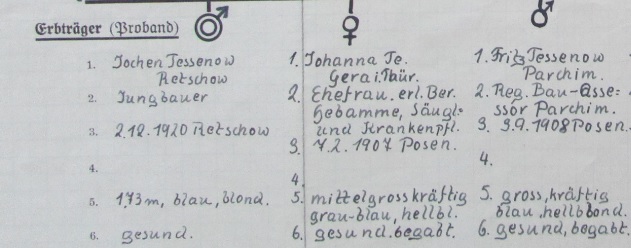 Erbträger (Proband)
1. Jochen Tessenow
Retschow
2. Jungbauer
3. 2.12.1920 Retschow
4.
5. 1,73 m, blau, blond.
6. gesund.
1. Johanna Te.
Gera i. Thür.
2. Ehefrau. erl. Ber.
Hebamme, Säugl=
und Krankenpfl.
3. 7.2.1907 Posen.
4.
5. mittelgross kräftig
grau-blau, hellbl.
6. gesund. begabt.
1. Fritz Tessenow
Parchim.
2. Reg. Bau-Asse=
ssor Parchim.
3. 3.9.1908 Posen.
4.
5. gross, kräftig
blau, hellblond.
6. gesund, begabt.